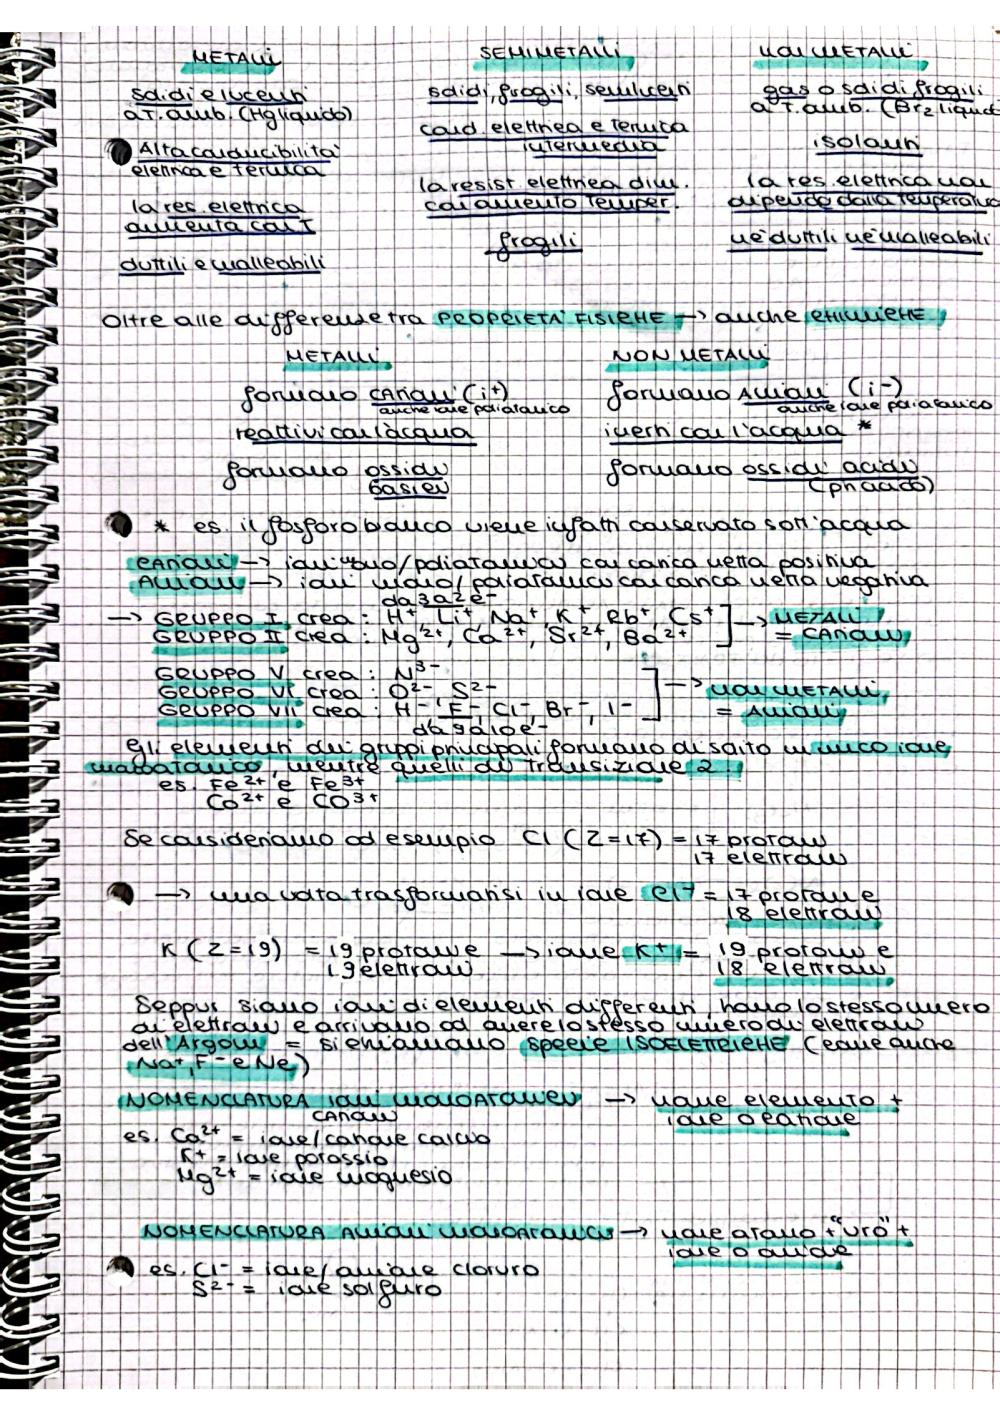 METALLI
SEMIMETALLI
NON METALLI
solidi e lucenti
a T. amb. (Hg liquido)
Alta conducibilità
elettrica e termica
la res. elettrica
aumenta con T
duttili e malleabili
solidi, fragili, semilucenti
cond. elettrica e termica
intermedia
la resist. elettrica dim.
con aumento temper.
fragili
gas o solidi fragili
a T. amb. (Br2 liquido
isolanti
la res. elettrica non
dipende dalla temperatura
nè duttili nè malleabili
Oltre alle differenze tra PROPRIETÀ FISICHE → anche CHIMICHE
METALLI
formano CATIONI (i+)
anche ione poliatomico
reattivi con l'acqua
formano ossidi
basici
NON METALLI
formano ANIONI (i-)
anche ione poliatomico
inerti con l'acqua *
formano ossidi acidi
(ph acido)
* es. il fosforo bianco viene infatti conservato sott'acqua
CATIONI → ioni mono/poliatomici con carica netta positiva
ANIONI → ioni mono/poliatomici con carica netta negativa
da 3 a 2 e-
→ GRUPPO I crea: H+, Li+, Na+, K+, Rb+, Cs+ → METALLI
GRUPPO II crea: Mg2+, Ca2+, Sr2+, Ba2+ = CATIONI
GRUPPO V crea: N3-
GRUPPO VI crea: O2-, S2- → NON METALLI
GRUPPO VII crea: H-, F-, Cl-, Br-, I- = ANIONI
da 9 a 10 e-
Gli elementi dei gruppi principali formano di solito un unico ione
monoatomico, mentre quelli di transizione 2.
es. Fe2+ e Fe3+
Co2+ e CO3+
Se consideriamo ad esempio Cl (Z=17) = 17 protoni
17 elettroni
→ una volta trasformatisi in ione Cl- = 17 protoni e
18 elettroni
K (Z=19) = 19 protoni e → ione K+ = 19 protoni e
19 elettroni 18 elettroni
Seppur siano ioni di elementi differenti, hanno lo stesso numero
di elettroni e arrivano ad avere lo stesso numero di elettroni
dell'Argon = si chiamano SPECIE ISOELETTRICHE (come anche
Na+, F- e Ne)
NOMENCLATURA IONI MONOATOMICI → nome elemento +
CATIONI ione o catione
es. Ca2+ = ione/catione calcio
K+ = ione potassio
Mg2+ = ione magnesio
NOMENCLATURA ANIONI MONOATOMICI → nome atomo + "uro" +
ione o anione
es. Cl- = ione/anione cloruro
S2- = ione solfuro